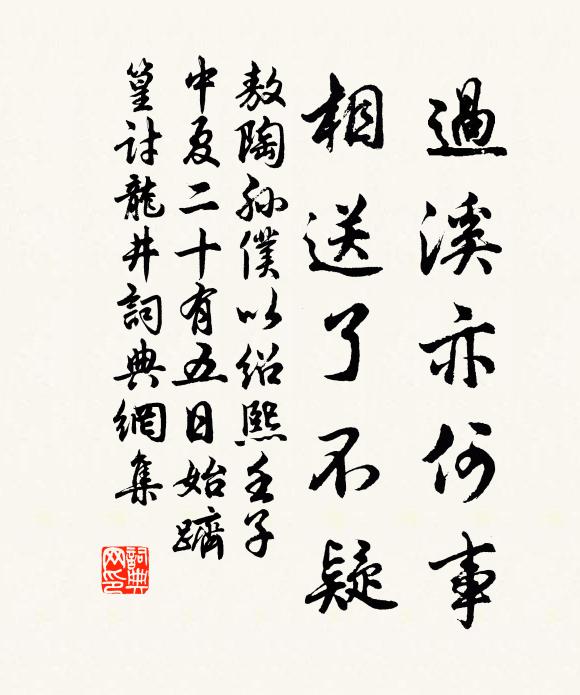 過溪亦何事
相送了不疑
敖陶孫僕以紹熙壬子
中夏二十有五日始躋
篁討龍井詞典網集
詞典网印